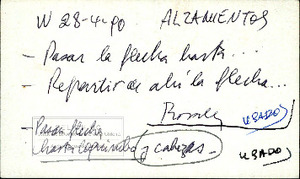 W 28-4-90 ALZAMIENTOS
- Pasar la flecha hasta...
- Repartir de ahí la flecha...
USADOS
- Pasar flecha
hasta y cabezas.
USADOS